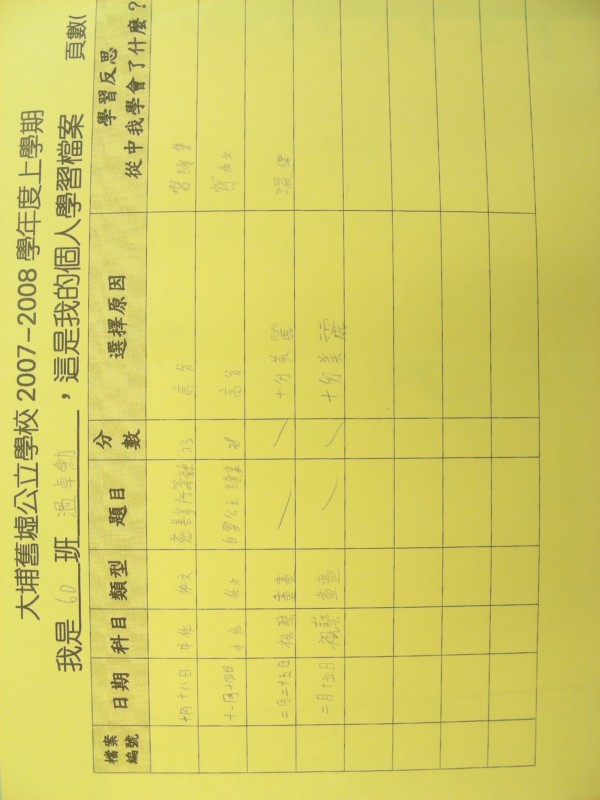 大埔舊墟公立學校 2007-2008 學年度上學期
我是 6D 班 溫卓勳 ，這是我的個人學習檔案 頁數(
檔案編號 日期 科目 類型 題目 分數 選擇原因 學習反思 從中我學會了什麼？
十月十八日 中作 作文 23 高分
十一月十四日 作文 白雪公主續集 高分
二月二十五日 視藝 畫畫 十分美麗
二月十五日 視藝 畫畫 十分美麗